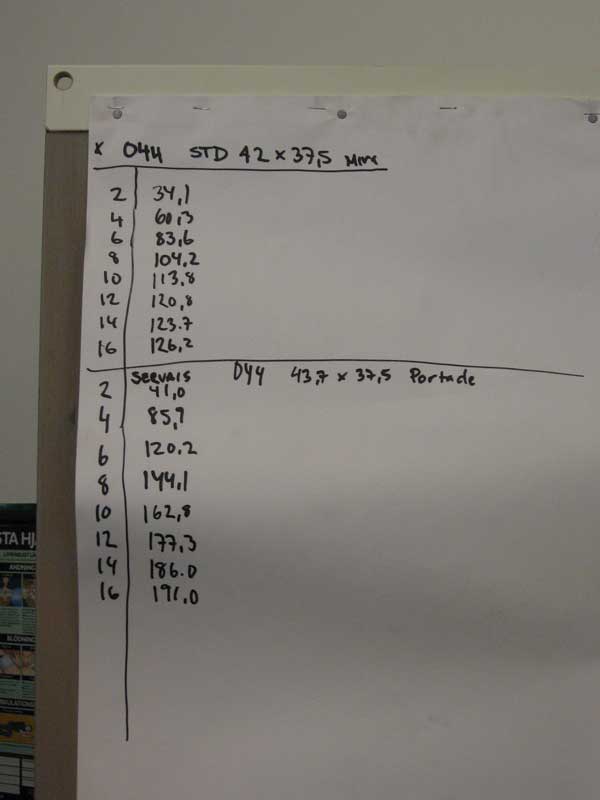 x 044 STD 42 x 37,5
2 34,1
4 60,3
6 83,6
8 104,2
10 113,8
12 120,8
14 123.7
16 126,2
SERVAIS 044 43,7 x 37,5 Portade
2 41,0
4 85,9
6 120.2
8 144,1
10 162,8
12 177,3
14 186.0
16 191,0
STA HJ
BLÖDNING